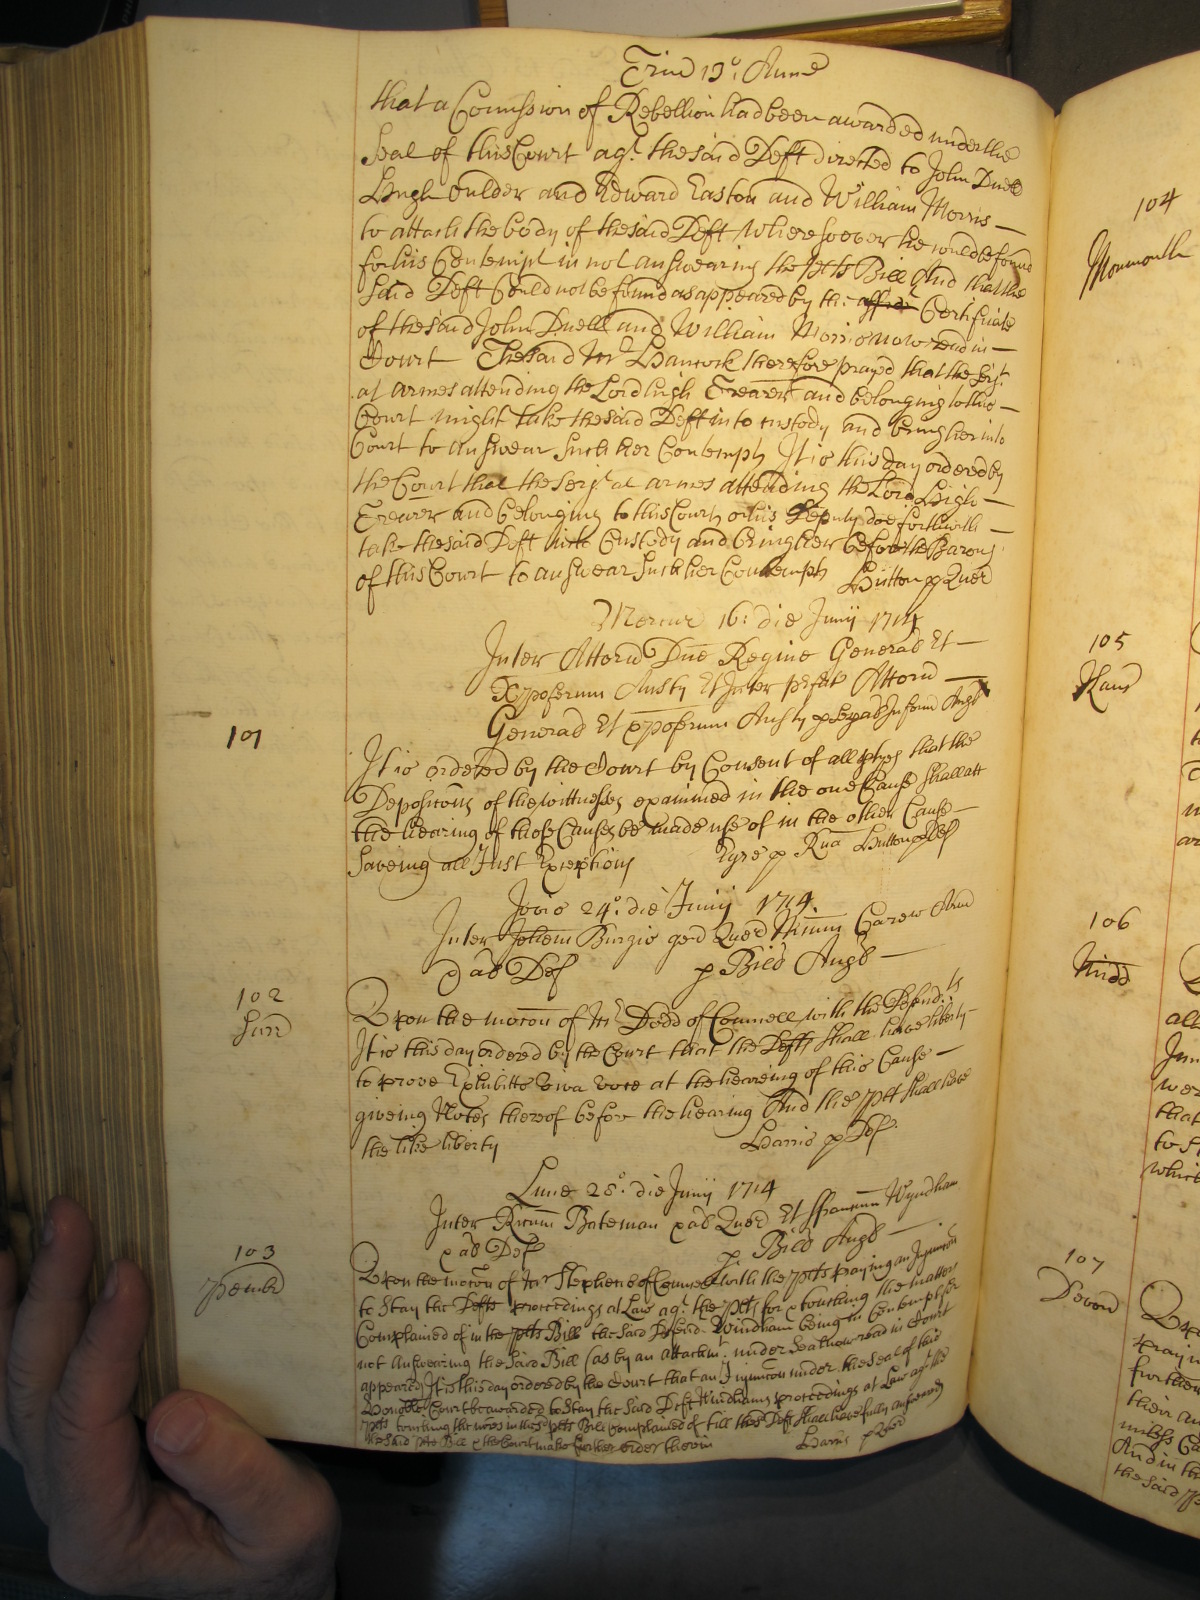 Trin 13o. Anne
that a Comission of Rebellion had been awarded under the
Seal of this Court agt. the said Deft directed to John Duell
Hugh Gulder and Edward Easton and William Morris
to attach the body of the said Deft wheresoever he could be found
for his Contempt in not answearing the Plts Bill And that the
said Deft Could not be found as appeared by the affidt Certificate
of the said John Duell and William Morris now read in
Court The said Mr Hancock therefore prayed that the Serjt
at armes attending the Lord high Trearer and belonging to this
Court might take the said Deft into custody and bring her into
Court to answear such her Contempts It is this day ordered by
the Court that the Serjt at armes attending the Lord High
Trearer and belonging to this Court or his Deputy doe forthwith
take the said Deft into Custody and bring her before the Barons
of this Court to answear such her Contempts Hutton p Quer
Mercur 16: die Junij 1714
Inter Attorn Dne Regine General Et
Xpoferum Ansty Et Inter prefat Attorn
General Et xpoferum Ansty p seperal Inform Angl
101
It is ordered by the Court by Consent of all ptyes that the
Depositons of the wittnesses examined in the one Cause shall att
the hearing of those Causes be made use of in the other Cause
Saveing all Just Exceptions Eyre p Rna Hutton p Def
Jovis 24o. die Junij 1714.
Inter Johem Burgis gen Quer Nicum Carew Arm
& al Def p Bill Angl
102
Surr
Upon the moton of Mr Dodd of Councell with the Defendts
It is this day ordered by the Court that the Defts shall have liberty
to prove Exhibitts viva voce at the heareing of this Cause
giveing Notes thereof before the hearing And the plt shall have
the like liberty Harris p Def.
Lune 28o. die Junij 1714
Inter Ricum Bateman & al Quer Et ffrancum Wyndham
& al Def p Bill Angl
103
Pembr
Upon the moton of Mr Stephens of Councel with the plts praying an Injuncon
to Stay the Defts proceedings at Law agt. the plts for & touching the matters
Complained of in the plts Bill the said Defend. Windham being in Contempt for
not answearing the said Bill (as by an attachmt. under seal now read in Court
appeared) It is this day ordered by the Court that an Injuncon under the Seal of this
Honoble Court be awarded to Stay the said Deft Windhams proceedings at Law agt the
plts touching the in the plts Bill Complained of till the Deft shall have fully answeared
the said plts Bill & the Court make further order therein Harris p Quer
104
Monmouth
105
Kanc
106
Midd
107
Devon